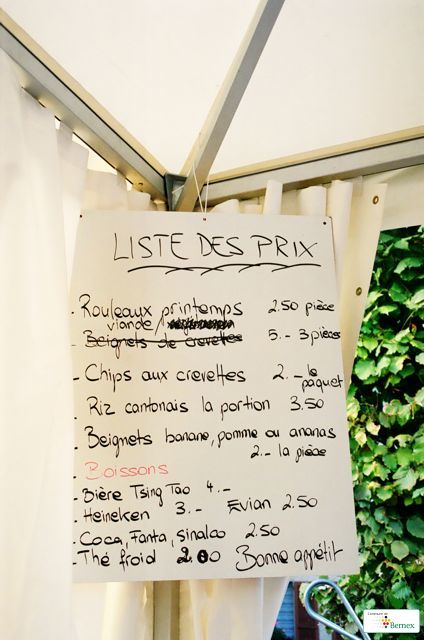 LISTE DES PRIX
- Rouleaux printemps 2.50 pièce
viande /
- Beignets de crevettes 5.- 3 pièces
- Chips aux crevettes 2.- le paquet
- Riz cantonais la portion 3.50
- Beignets banane, pomme ou ananas
2.- la pièce
- Boissons
- Bière Tsing Tao 4.-
- Heineken 3.- Evian 2.50
- Coca, Fanta, sinalco 2.50
- Thé froid 2.00 Bonne appétit
Commune de
Bernex